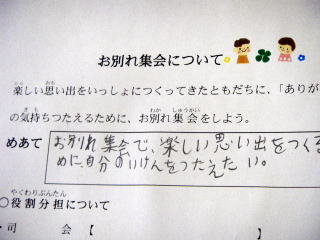 お別れ集会について
楽しい思い出をいっしょにつくってきたともだちに、「ありが
の気持ちつたえるために、お別れ集会をしよう。
めあて お別れ集会で、楽しい思い出をつくる
ために、自分のいけんをつたえたい。
○役割分担について
・司　会【　　　】